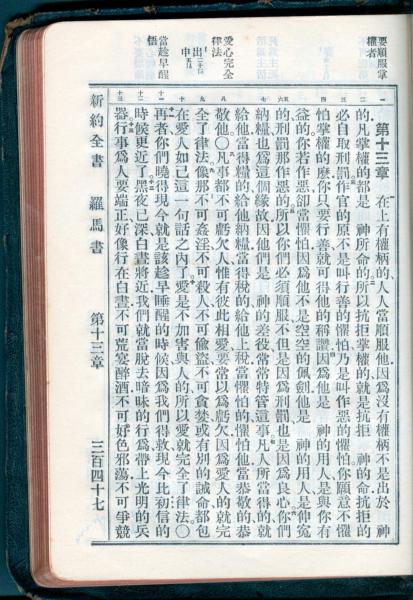 要順服掌
權者
愛心完全
律法
當趁早醒
悟
第十三章 在上有權柄的人人當順服他因爲沒有權柄不是出於 神
的凡掌權的都是 神所命的所以抗拒掌權的就是抗拒 神的命抗拒的
必自取刑罰作官的原不是叫行善的懼怕乃是叫作惡的懼怕你願意不懼
怕掌權的麼你只要行善就可得他的稱讚因爲他是 神的用人是與你有
益的你若作惡卻當懼怕因爲他不是空空的佩劍他是 神的用人是伸冤
的刑罰那作惡的所以你們必須順服不但是因爲刑罰也是因爲良心你們
納糧也爲這個緣故因他們是 神的差役常常特管這事凡人所當得的就
給他當得糧的給他納糧當得稅的給他上稅當懼怕的懼怕他當恭敬的恭
敬他〇凡事都不可虧欠人惟有彼此相愛要常以爲虧欠因爲愛人的就完
全了律法像那不可姦淫不可殺人不可偷盜不可貪婪或有別的誡命都包
在愛人如己這一句話之內了愛是不加害與人的所以愛就完全了律法〇
再者你們曉得現今就是該趁早睡醒的時候因爲我們得救現今比初信的
時候更近了黑夜已深白晝將近我們就當脫去暗昧的行爲帶上光明的兵
器行事爲人要端正好像行在白晝不可荒宴醉酒不可好色邪蕩不可爭競
新約全書 羅馬書 第十三章 三百四十七